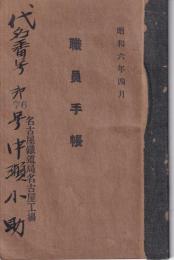 昭和六年四月
職員手帳
名古屋鐵道局名古屋工場
代名番号 第76号 中瀬小助